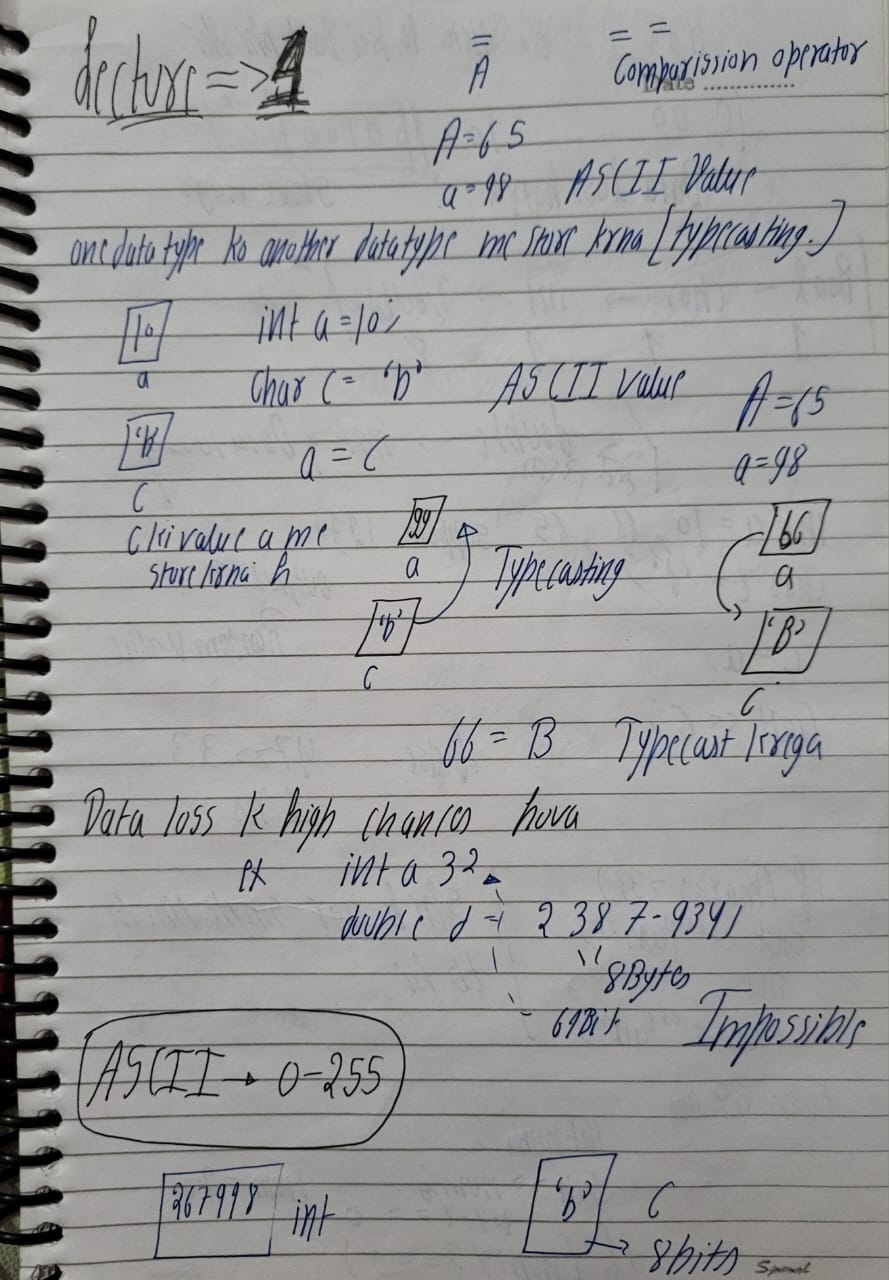 Lecture => 1
=
A
= =
Comparission operator
Date
A=65
a=98 ASCII Value
one data type ko another datatype me store krna [typecasting.]
10
a
int a=10;
Char C= 'b' ASCII value
A=65
'b'
C
a = C
a=98
C ki value a me
store krna h
99
a
'b'
C
Typecasting
66
a
'B'
C
66 = B Typecast krega
Data loss k high chances hova
ex int a 32
double d = 2387-9341
8Bytes
64Bit
Impossible
ASCII → 0-255
267998 int
'b' C
→ 8bits